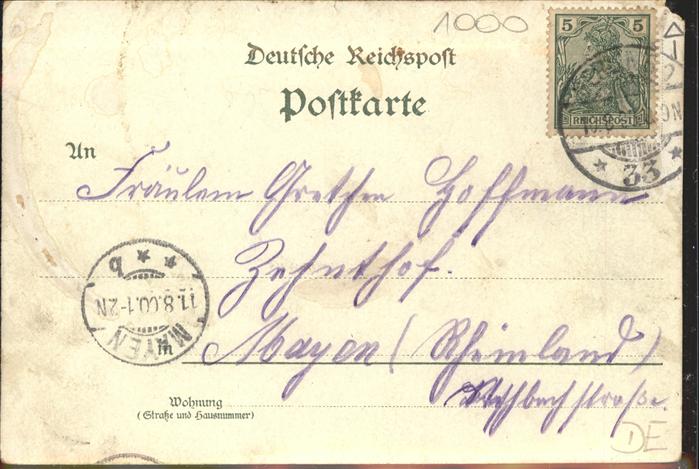 1000
5 5
REICHSPOST
Deutsche Reichspost
Postkarte
33
An
Fräulein Grethen Hoffmann
Zehnthof.
Mayen (Rheinland)
MAYEN
11.8.00.1-2N
b
Wohnung
(Straße und Hausnummer)
DE